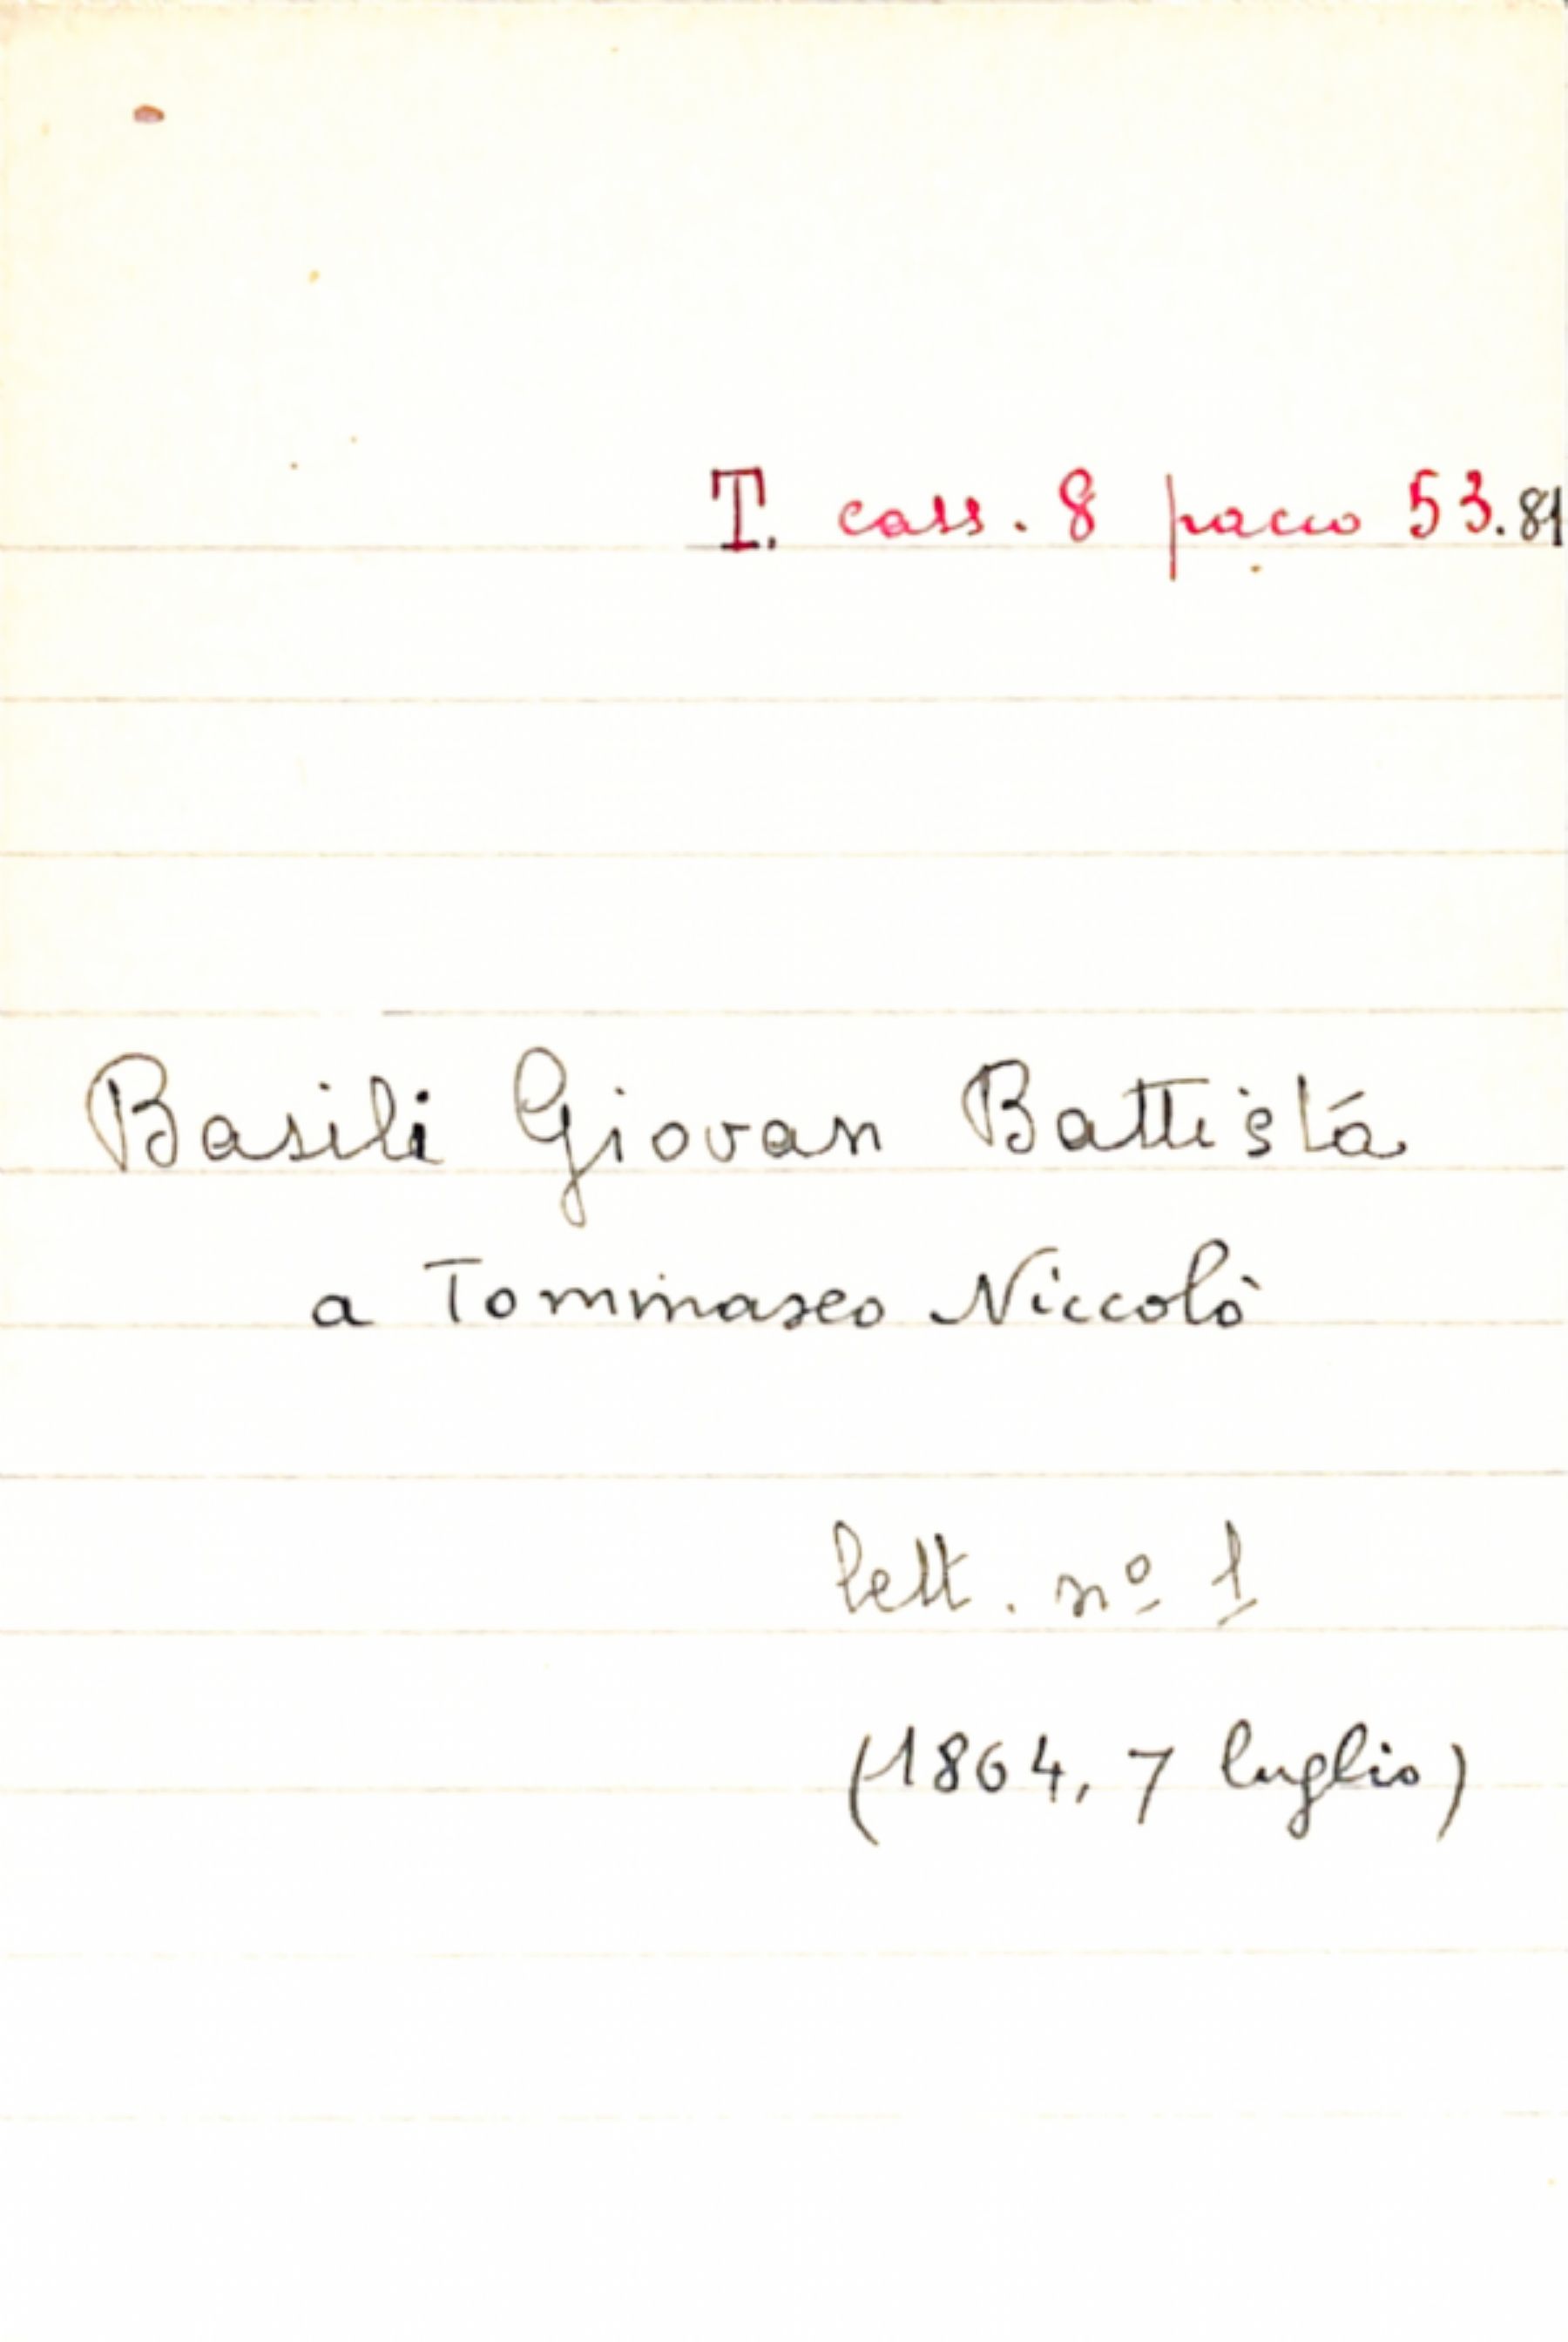 T. cass. 8 pacco 53.81
Basili Giovan Battista
a Tommaseo Niccolò
lett. nº 1
(1864, 7 luglio)